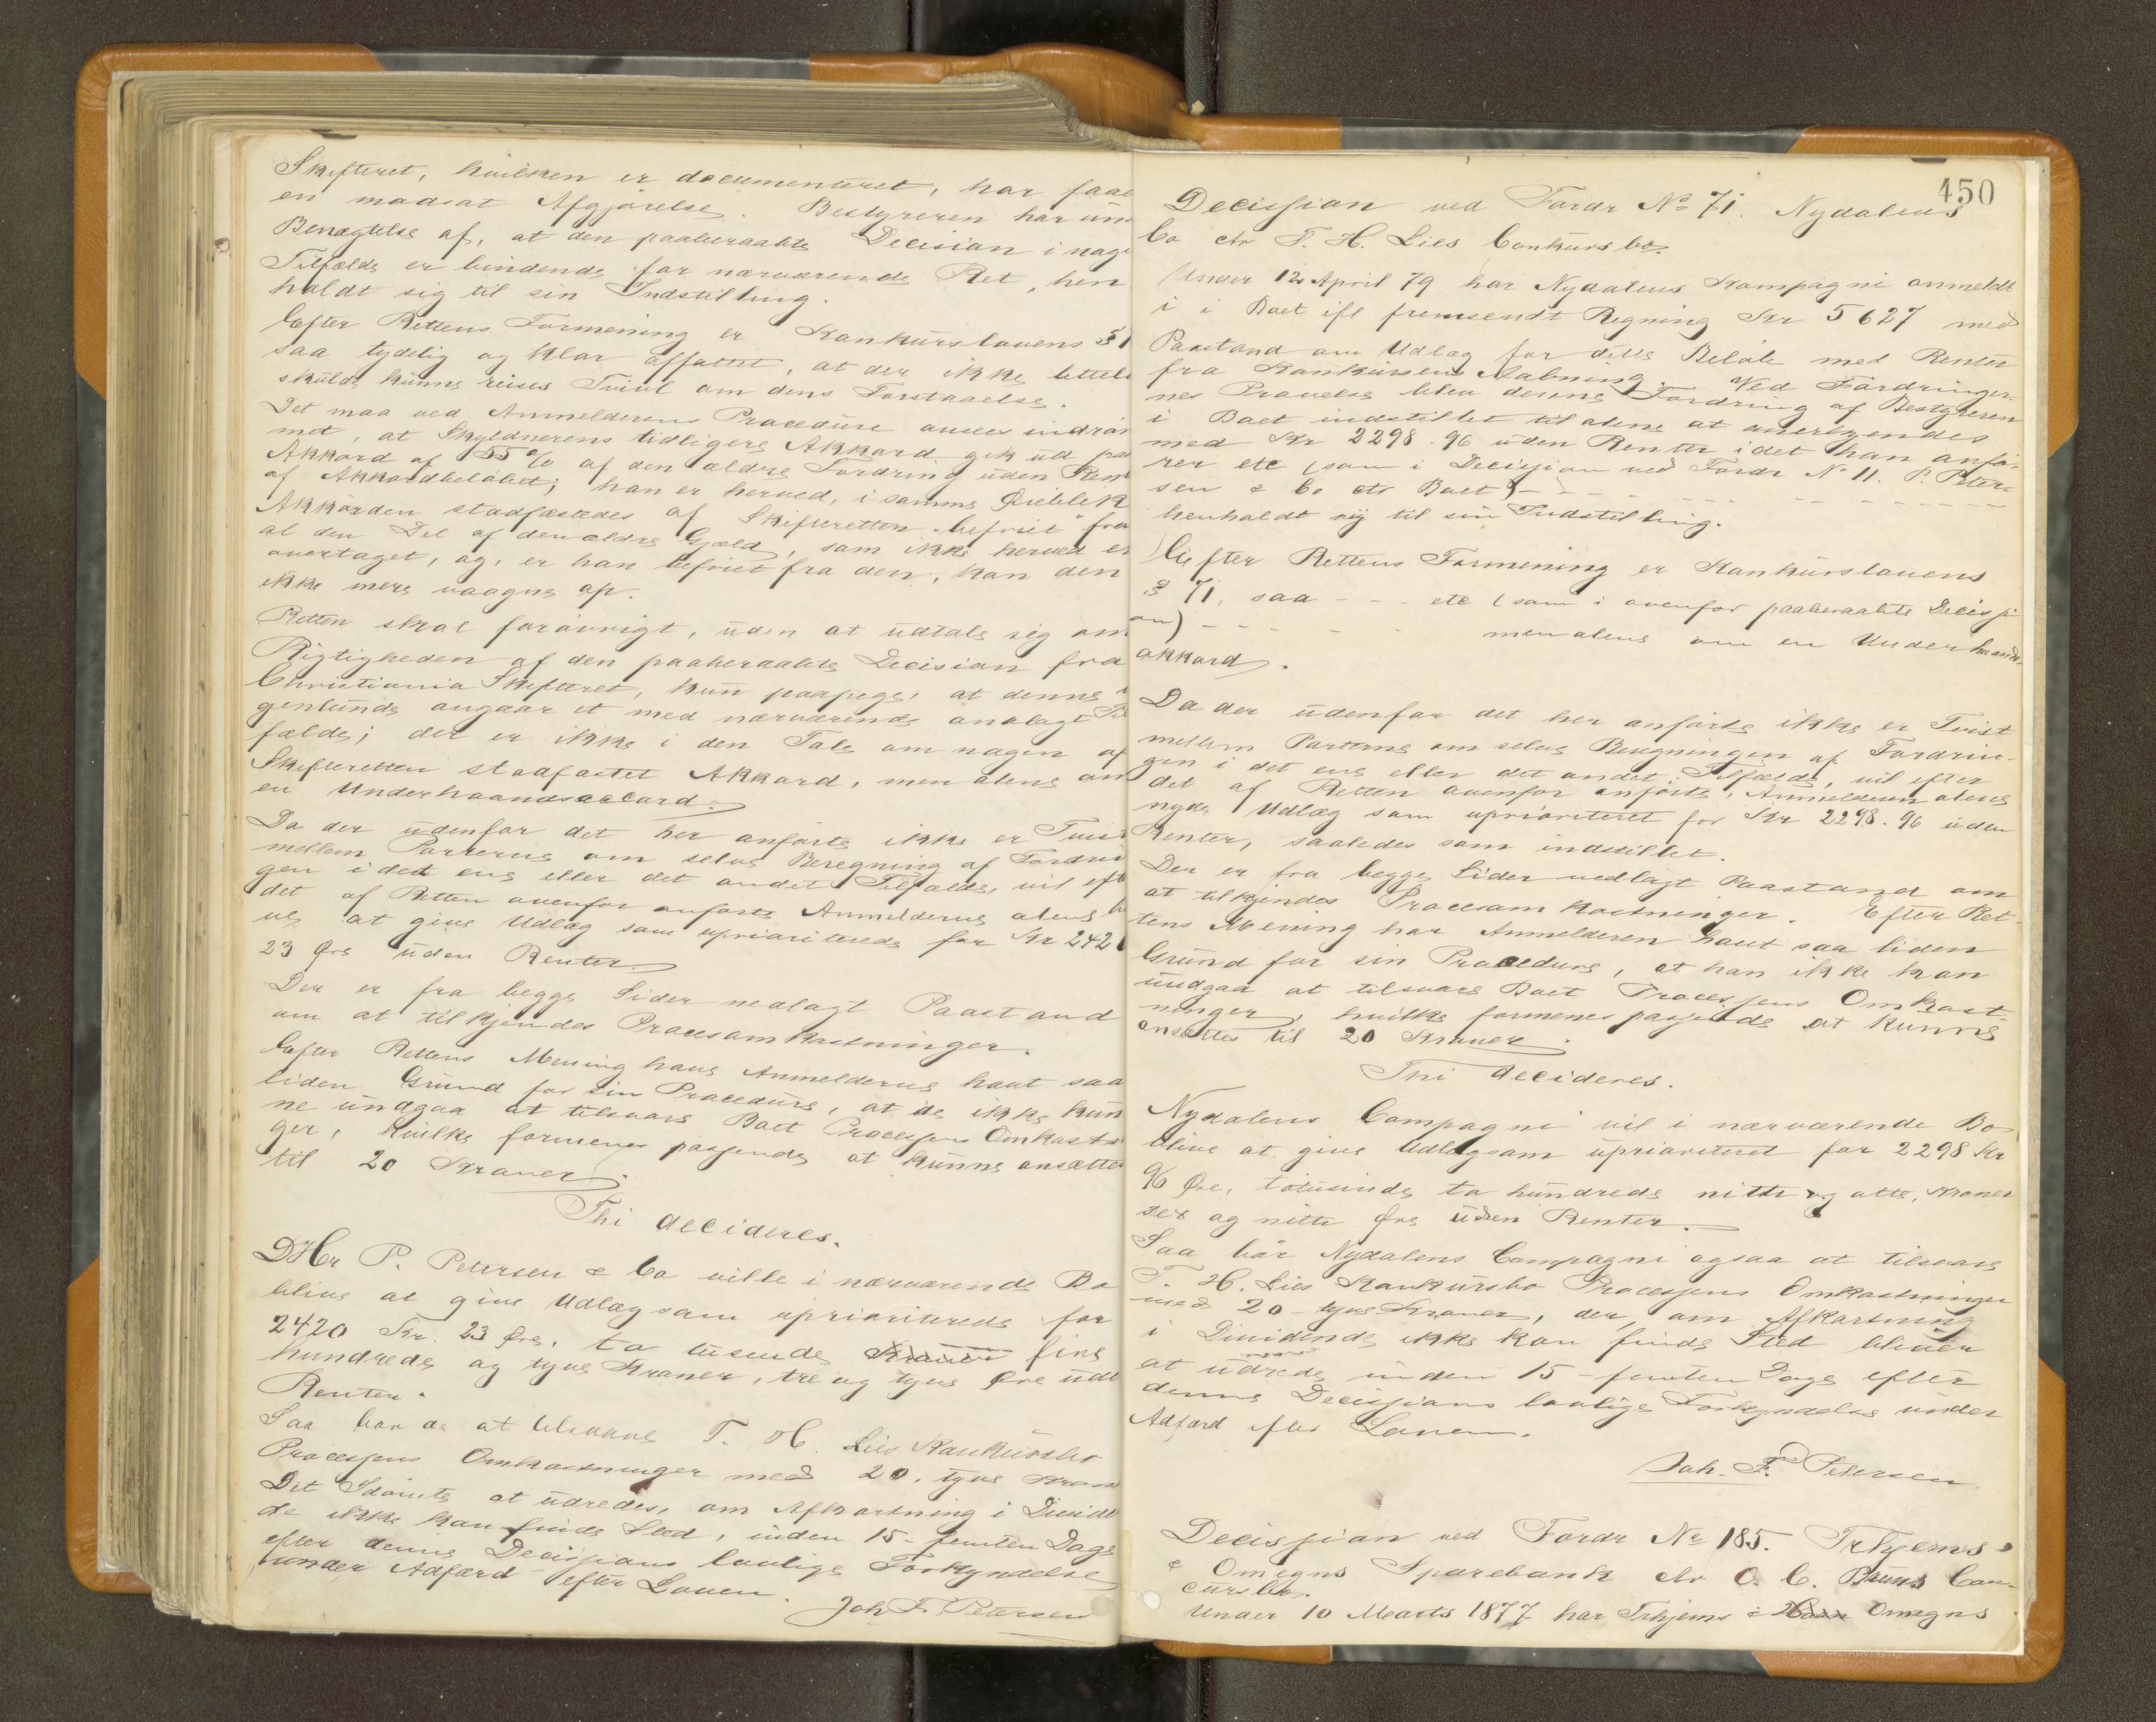 Skifteret, hvilken er documenteret, har faae
en modsat Afgjörelse. Bestyreren har un
Benægtelse af, at den paaberaabte Decision i noge
Tilfælde er bindende for nærværende Ret, hen
holdt sig til sin Indstilling.
Efter Rettens Formening er Konkurslovens §
saa tydelig og klar affattet, at der ikke lettel
skulde kunne reises Tvivl om dens Forstaaelse.
Det maa ved Anmelderens Procedure ansees indröm
met, at Skyldnerens tidligere Akkord gik ud paa
Akkord af 55 % af den ældre Fordring uden Rent
af Akkordbelöbet; han er herved, i samme Öieblik
Akkorden stadfæstedes af Skifteretten "befriet" fra
al den Del af den ældre Gjæld, som ikke herved er
overtaget, og, er han befriet fra den, kan den
ikke mere vaagne op.
Retten skal forövrigt, uden at udtale sig om
Rigtigheden af den paaberaabte Decision fra
Christiania Skifteret, kun paapege, at denne
genlunde angaar et med nærværende analogt Til
fælde; der er ikke i den Tale om nogen af
Skifteretten stadfæstet Akkord, men alene om
en Underhaandsaccord.
Da der udenfor det her anförte ikke er Tvist
mellem Parterne om selve Beregning af Fordrin
gen i det ene eller det andet Tilfælde, vil eft
det af Retten ovenfor anförte Anmelderne alene
ve at give Udlæg som uprioriterede for Kr 2420
23 Øre uden Renter.
Der er fra begge Sider nedlagt Paastand
om at tilkjendes Procesomkostninger.
Efter Rettens Mening have Anmelderne havt saa
liden Grund for sin Procedure, at de ikke kun
ne undgaa at tilsvare Boet Processens Omkostn
ger, hvilke formenes passende at kunne ansættes
til 20 Kroner.
Thi decideres.
DHr P. Petersen & Co ville i nærværende Bo
blive at give Udlæg som uprioriterede for
2420 Kr. 23 Øre, to tusende Kroner fire
hundrede og tyve Kroner, tre og tyve Øre ude
Renter.
Saa bör de at tilsvare T. H. Lies Konkursbo
Processens Omkostninger med 20, tyve Kron
Det Idömte at udredes, om Afkortning i Divide
de ikke kan finde Sted, inden 15 - femten Dage
efter denne Decissions lovlige Forkyndelse
under Adfærd efter Loven.
Joh. F. Petersen
450
Decission ved Fordr No 71. Nydalens
Co ctr T. H. Lies Conkursbo.
Under 12 April 79 har Nydalens Kompagni anmeldt
i i Boet ifl fremsendt Regning Kr 5627 med
Paastand om Udlæg for dette Belöb med Renter
fra Konkursens Aabning. Ved Fordringer-
nes Prövelse blev denne Fordring af Bestyreren
i Boet indstillet til alene at anerkjendes
med Kr 2298.96 uden Renter idet han anfö-
rer etc (som i Decission ved Fordr No 11. P. Peter-
sen & Co ctr Boet) - - - - - - - -
henholdt sig til sin Indstilling.
Efter Rettens Formening er Konkurslovens
§ 71, saa - - - etc (som i ovenfor paaberaabte Decissi
on) - - - - - men alene om en Underhaands-
akkord.
Da der udenfor det her anförte ikke er Tvist
mellem Parterne om selve Beregningen af Fordrin-
gen i det ene eller det andet Tilfælde, vil efter
det af Retten ovenfor anförte, Anmelderen alene
nyde Udlæg som uprioriteret for Kr 2298.96 uden
Renter, saaledes som indstillet.
Der er fra begge Sider nedlagt Paastand om
at tilkjendes Procesomkostninger. Efter Ret-
tens Mening har Anmelderen havt saa liden
Grund for sin Procedure, at han ikke kan
undgaa at tilsvare Boet Processens Omkost-
ninger, hvilke formenes passende at kunne
ansættes til 20 Kroner.
Thi decideres.
Nydalens Compagni vil i nærværende Bo
blive at give Udlæg som uprioriteret for 2298 Kr
96 Øre, totusinde to hundrede nitti og otte, Kroner
sex og nitti Øre uden Renter.
Saa bör Nydalens Compagni ogsaa at tilsvare
T. H. Lies Konkursbo Processens Omkostninger
med 20 - tyve Kroner, der, om Afkortning
i Dividende ikke kan finde Sted bliver
at udrede inden 15 - femten Dage efter
denne Decissions lovlige Forkyndelse under
Adfærd efter Loven.
Joh. F. Petersen
Decission ved Fordr No 185. Trhjems
& Omegns Sparebank ctr O. C. Bruns Con-
cursbo.
Under 10 Marts 1877 har Trhjems & Omegns